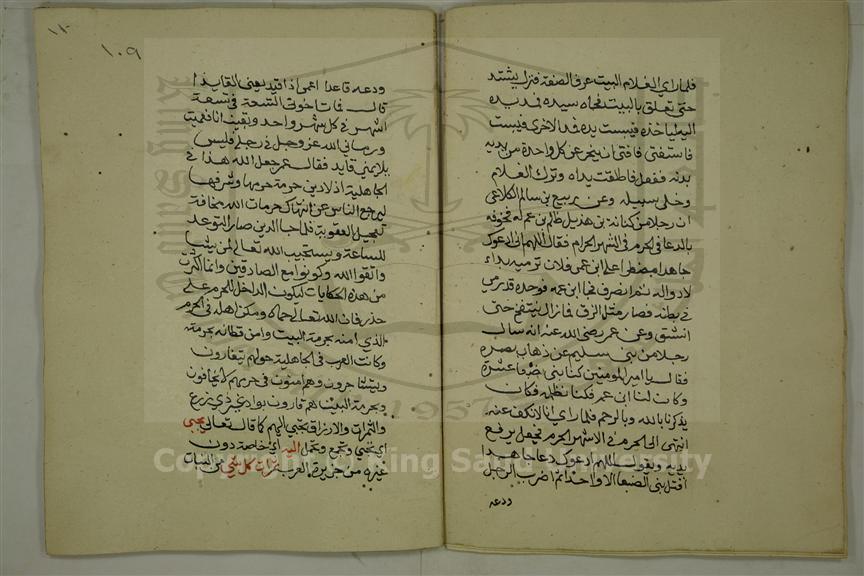 فلما راي الغلام البيت عرف الصفة فنزل يشتد
حتى تعلق بالبيت فجاه سيده فمد يده
اليه لياخذه فيبست يده فمد الاخرى فيبست
فاستفتى فافتى ان ينحر عن كل واحدة من يديه
بدنه ففعل فاطلقت يداه وترك الغلام
وخلى سبيله وعن ربيع بن سالم الكلاعي
ان رجلا من كنانة بن هذيل ظلم ابن عم له فخوفه
بالدعا في الحرم في الشهر الحرام فقال اللهم اني ادعوك
جاهدا مضطرا على ابن عمي فلان ترميه بداء
لا دواله ثم انصرف فجا ابن عمه فوجده قد رمي
في بطنه فصار مثل الزق فما زال ينتفخ حتى
انشق وعن عمر رضي الله عنه انه سال
رجلا من بني سليم عن ذهاب بصره
فقال يا امير المومنين كنا بني ضبعا عشرة
وكان لنا ابن عم فكنا نظلمه فكان
يذكرنا بالله وبالرحم فلما راي انا لا نكف عنه
انتهى الى الحرم في الاشهر الحرم فجعل يرفع
يديه ويقول اللهم ادعوك دعا جاهدا
اقتل بني الضبعا الا واحدا ثم اضرب الرجل
ودعه
١١٠
١٠٩
ودعه قاعدا اعمى اذا قيد يعني القايد
قال فمات اخوتي التسعة في تسعة
اشهر في كل شهر واحد وبقيت انا فعميت
ورماني الله عز وجل في رجلي فليس
يلايمني قايد فقال عمر جعل الله هذا في
الجاهلية اذ لا دين حرمة حرمها وشرفها
ليرجع الناس عن انتهاك حرمات الله مخافة
تعجيل العقوبة فلما جا الدين صار الموعد
للساعة ويستجيب الله تعالى لمن يشا
واتقوا الله وكونوا مع الصادقين وانما اكثرت
من هذه الحكايات ليكون الداخل للحرم على
حذر فان الله تعالى حماه ومكن اهله في الحرم
الذي امنه بحرمة البيت وامن قطانه بحرمته
وكانت العرب في الجاهلية حولهم يتغاورون
ويتناحرون وهم امنون في حرمهم لا يخافون
وبحرمة البيت هم قارون بواد غير ذي زرع
والثمرات والارزاق تجبي اليهم كما قال تعالى يجبى
اي يجبي وتجمع وتحمل اليه اي خاصة دون
غيره من جزيرة العرب ثمرات كل شي من النبات
Copyright © King Saud University
1957